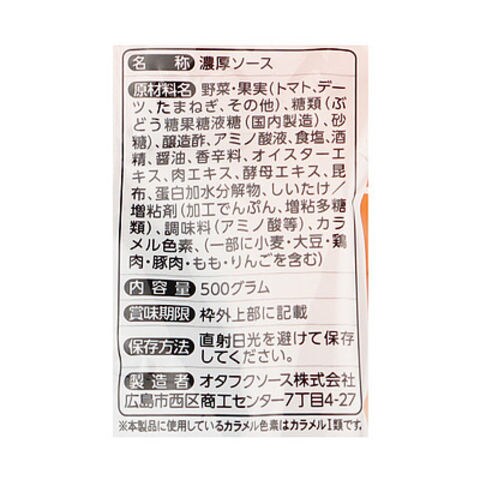 名称 濃厚ソース
原材料名 野菜・果実(トマト、デー
ツ、たまねぎ、その他)、糖類(ぶ
どう糖果糖液糖(国内製造)、砂
糖)、醸造酢、アミノ酸液、食塩、酒
精、醤油、香辛料、オイスターエ
キス、肉エキス、酵母エキス、昆
布、蛋白加水分解物、しいたけ/
増粘剤(加工でんぷん、増粘多糖
類)、調味料(アミノ酸等)、カラ
メル色素、(一部に小麦・大豆・鶏
肉・豚肉・もも・りんごを含む)
内容量 500グラム
賞味期限 枠外上部に記載
保存方法 直射日光を避けて保存
してください。
製造者 オタフクソース株式会社
広島市西区商工センター7丁目4-27
※本製品に使用しているカラメル色素はカラメルⅠ類です。